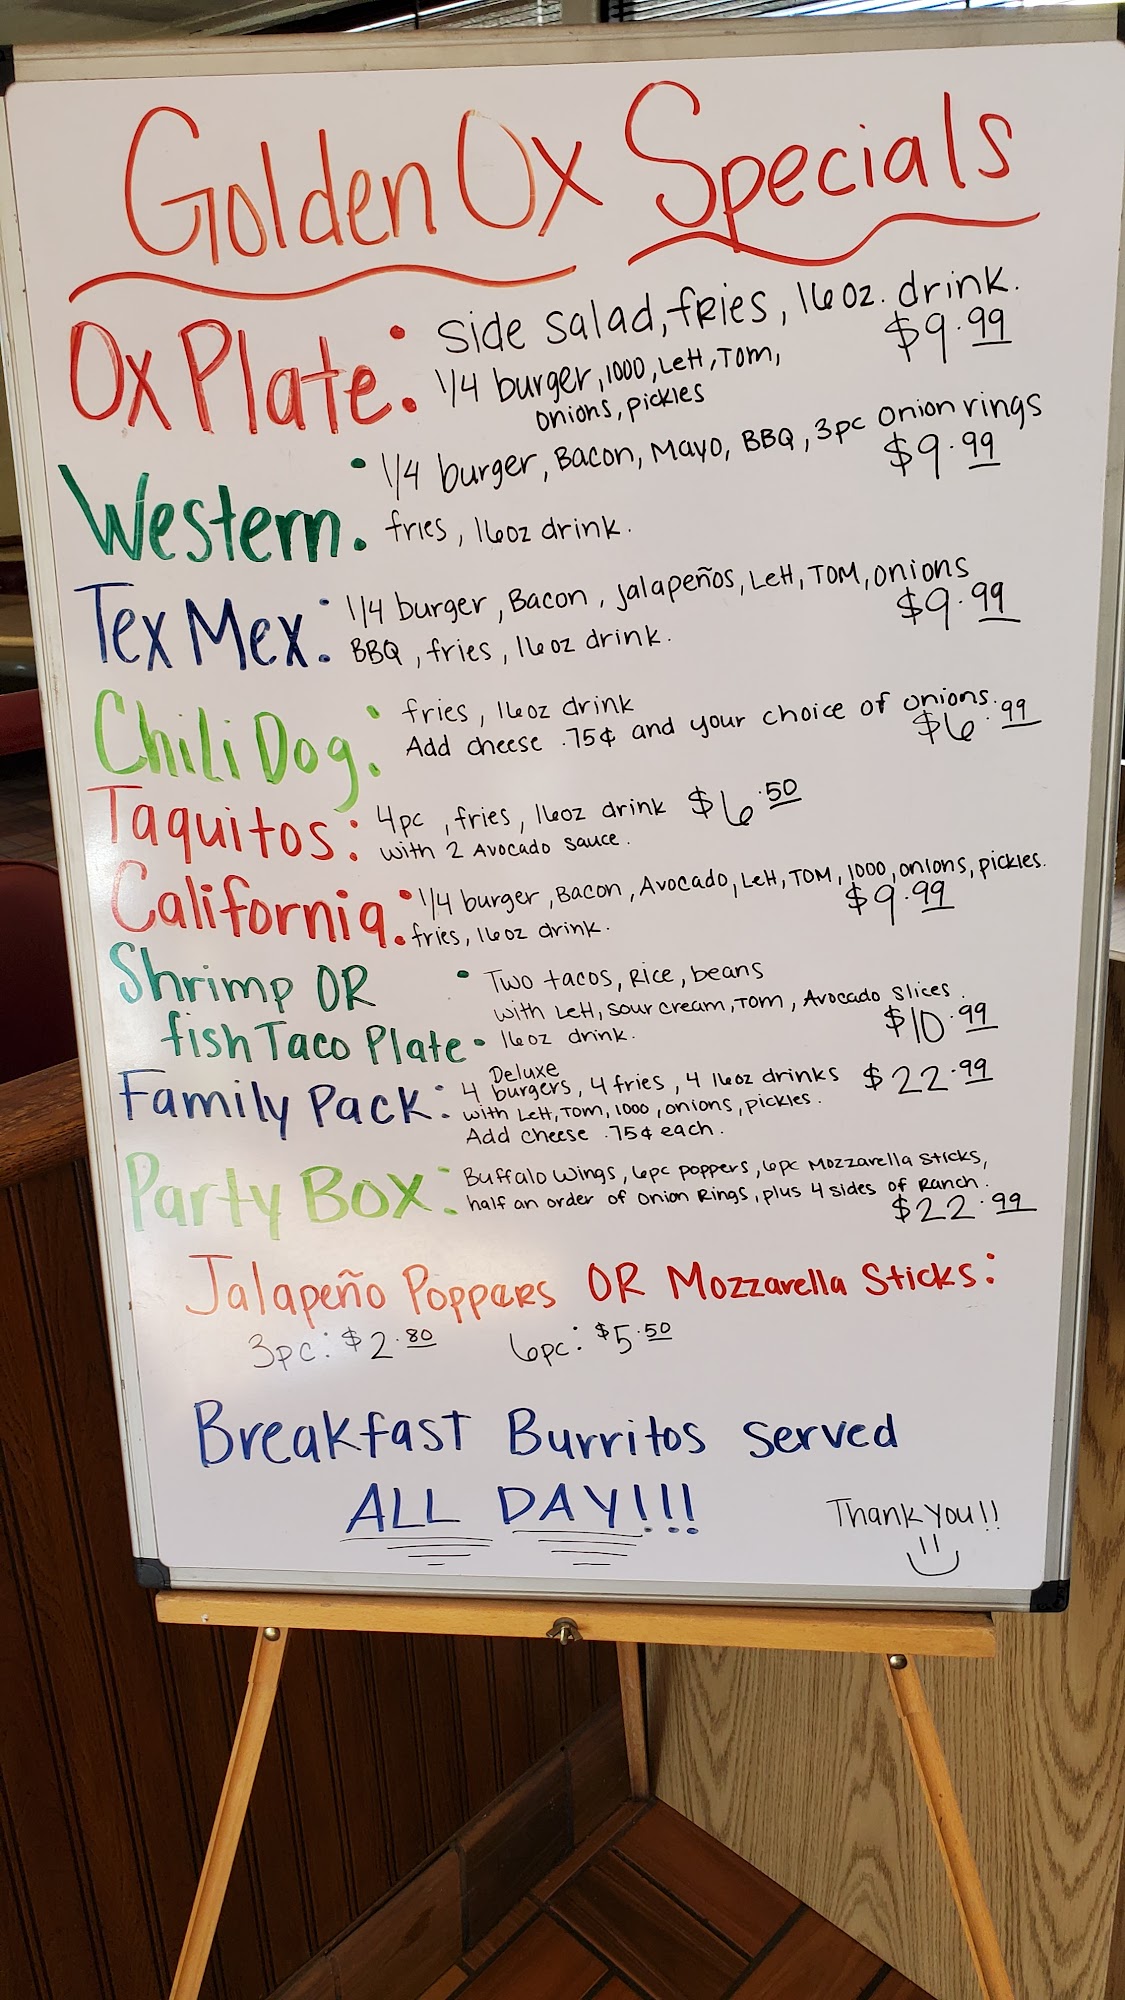 Golden Ox Specials
Ox Plate: side salad, fries, 16oz. drink. $9.99
1/4 burger, 1000, Lett, Tom,
onions, pickles
Western: 1/4 burger, Bacon, Mayo, BBQ, 3pc onion rings $9.99
fries, 16oz drink.
Tex Mex: 1/4 burger, Bacon, jalapeños, Lett, TOM, onions $9.99
BBQ, fries, 16oz drink.
Chili Dog: fries, 16oz drink
Add cheese .75¢ and your choice of onions. $6.99
Taquitos: 4pc, fries, 16oz drink $6.50
with 2 Avocado sauce.
California: 1/4 burger, Bacon, Avocado, Lett, TOM, 1000, onions, pickles.
fries, 16oz drink. $9.99
Shrimp OR
fish Taco Plate: Two tacos, Rice, beans
with Lett, sour cream, TOM, Avocado slices.
16oz drink. $10.99
Family Pack: 4 Deluxe burgers, 4 fries, 4 16oz drinks $22.99
with Lett, Tom, 1000, onions, pickles.
Add cheese .75¢ each.
Party Box: Buffalo wings, 6pc poppers, 6pc Mozzarella sticks,
half an order of Onion Rings, plus 4 sides of Ranch.
$22.99
Jalapeño Poppers OR Mozzarella Sticks:
3pc: $2.80 6pc: $5.50
Breakfast Burritos served
ALL DAY!!!
Thank you!!